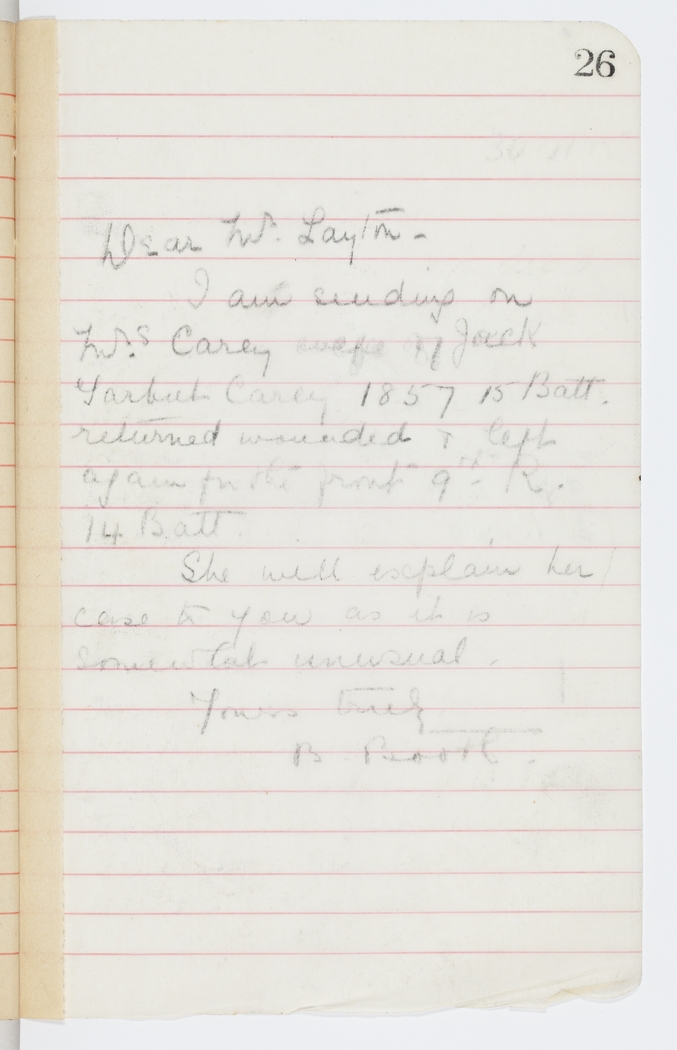 26
Dear Mr. Layton -
I am sending on
Mrs Carey wife of Jack
Carey 1857 15 Batt.
returned wounded & left
again for the front 9th R.
14 Batt.
She will explain her
case to you as it is
somewhat unusual.
Yours truly
B Booth.